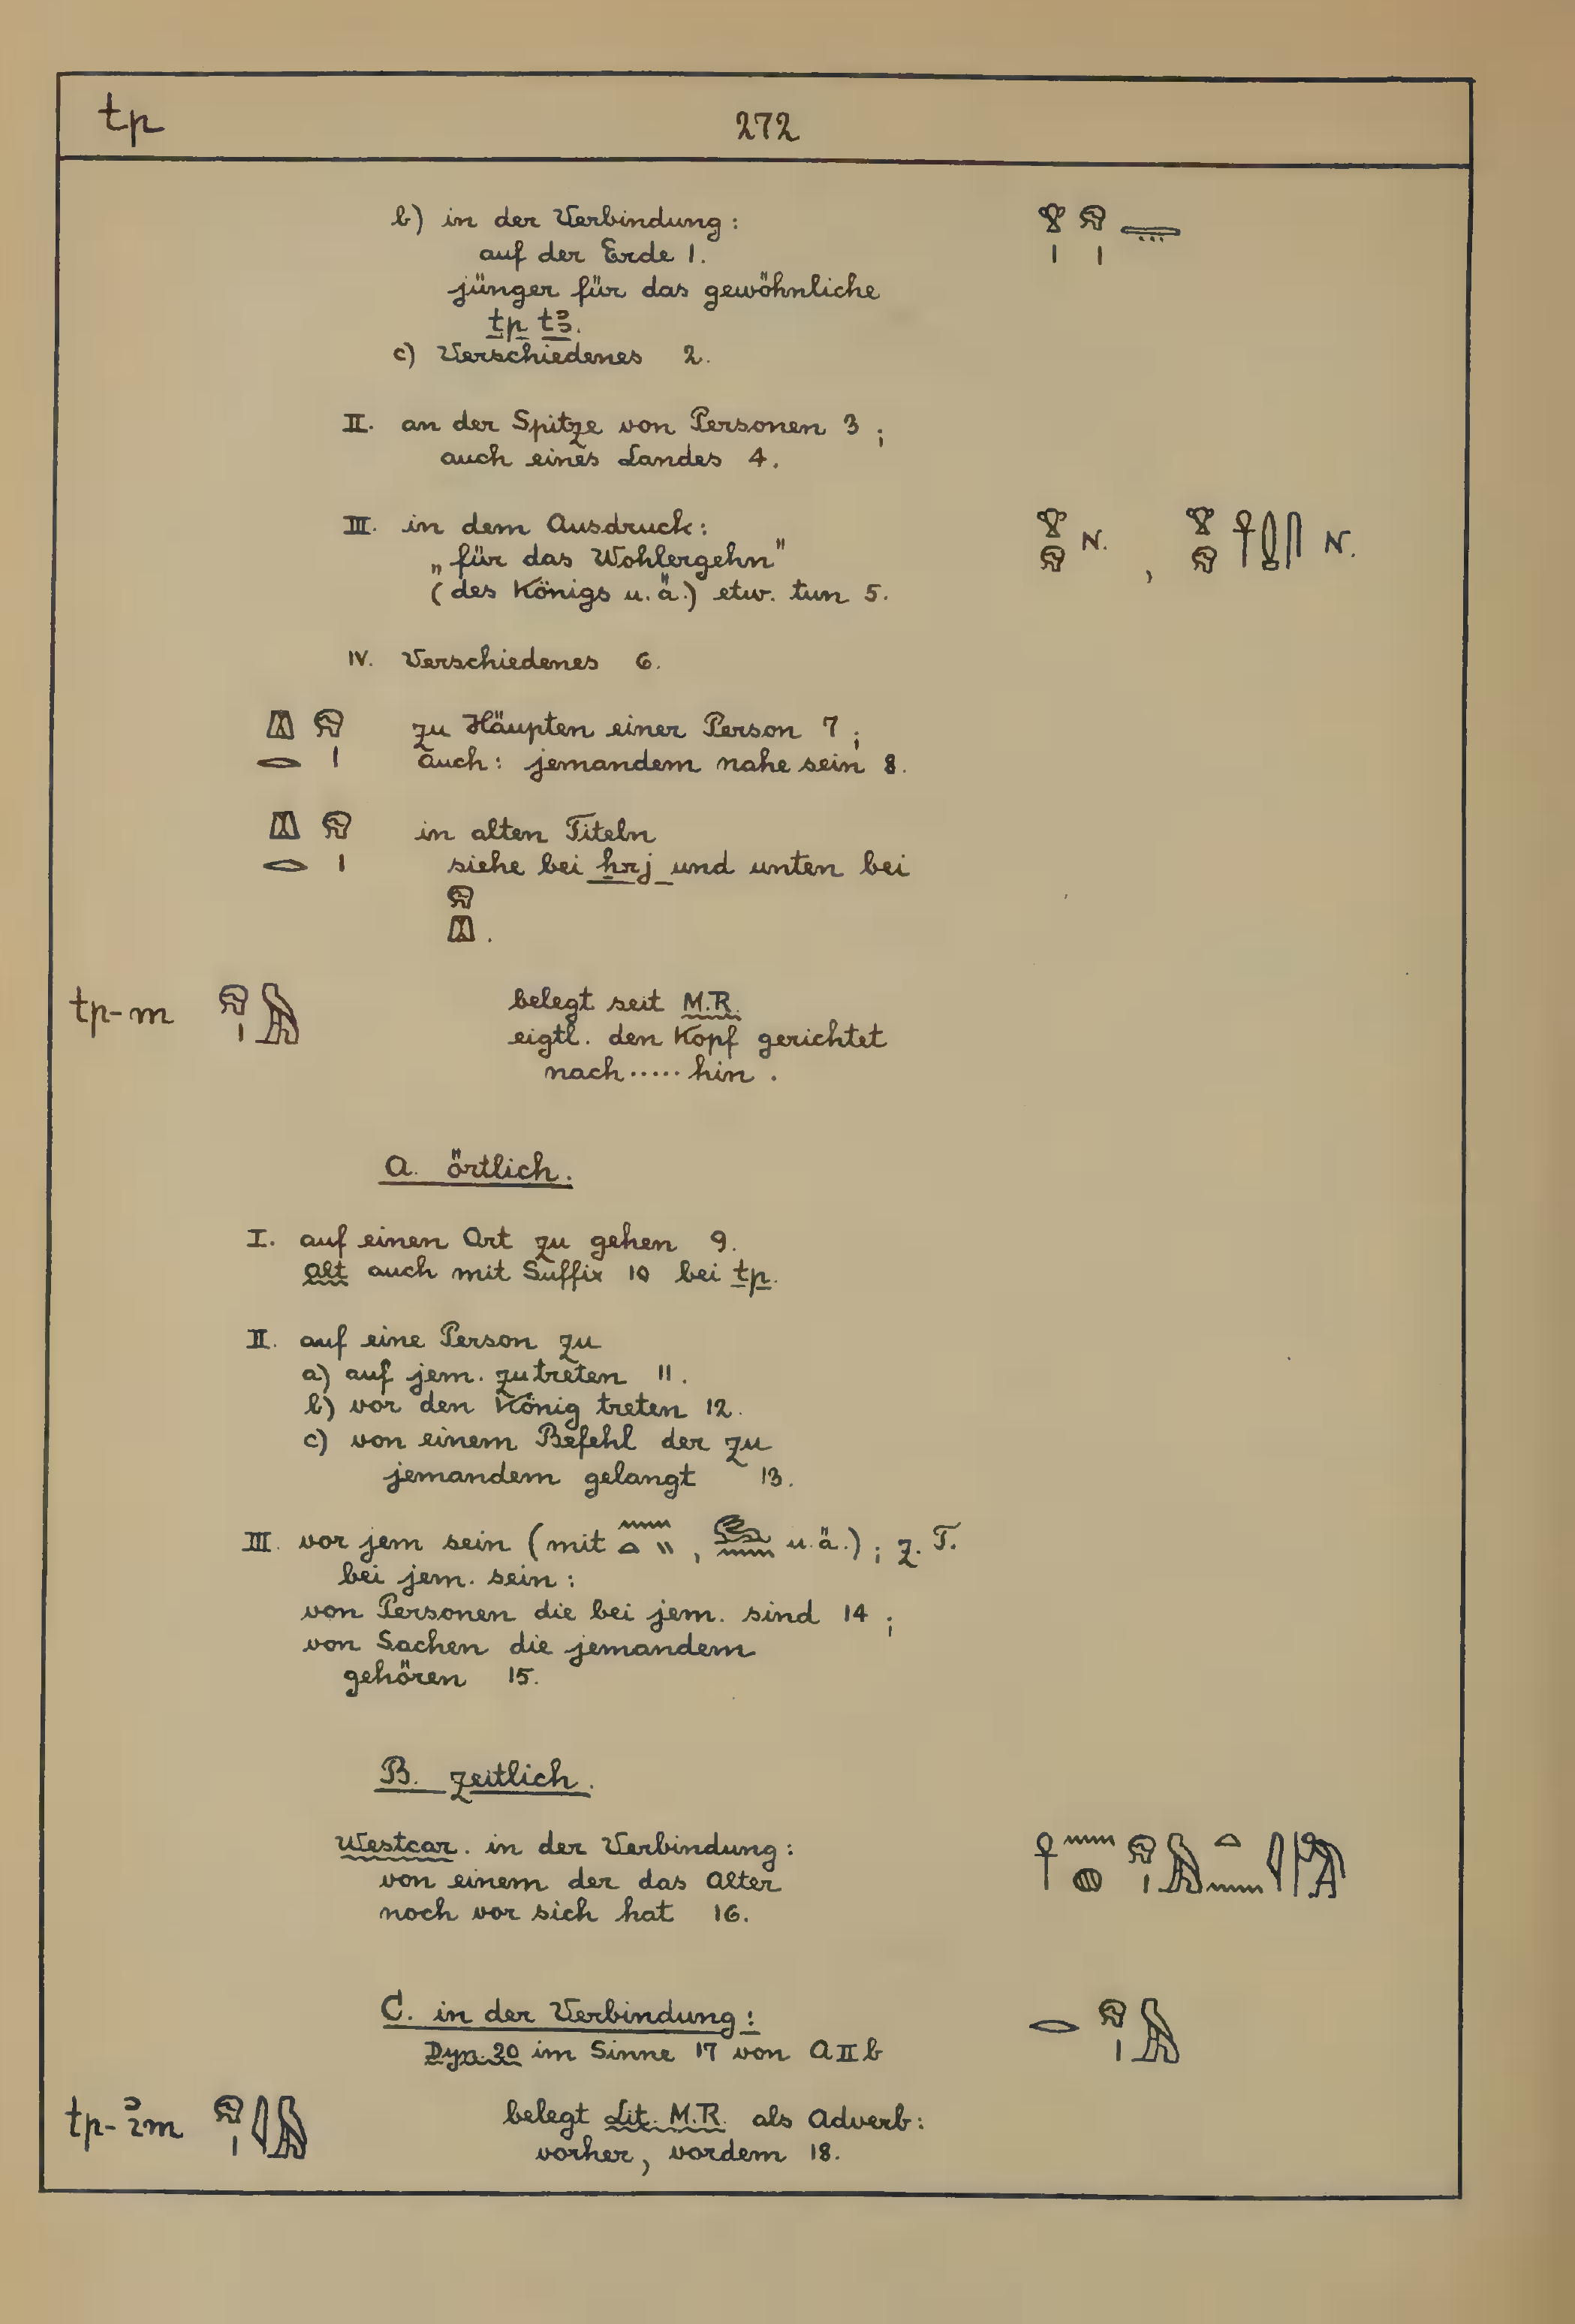 tp 272
b) in der Verbindung:
auf der Erde 1.
jünger für das gewöhnliche
tp tꜣ.
c) Verschiedenes 2.
II. an der Spitze von Personen 3;
auch eines Landes 4.
III. in dem Ausdruck: N. , N.
„für das Wohlergehn"
(des Königs u. ä.) etw. tun 5.
IV. Verschiedenes 6.
zu Häupten einer Person 7;
auch: jemandem nahe sein 8.
in alten Titeln
siehe bei ẖrj und unten bei
.
tp-m belegt seit M.R.
eigtl. den Kopf gerichtet
nach ..... hin.
A. örtlich.
I. auf einen Ort zu gehen 9.
Alt auch mit Suffix 10 bei tp.
II. auf eine Person zu
a) auf jem. zutreten 11.
b) vor den König treten 12.
c) von einem Befehl der zu
jemandem gelangt 13.
III. vor jem sein (mit , u. ä.); z. T.
bei jem. sein:
von Personen die bei jem. sind 14;
von Sachen die jemandem
gehören 15.
B. zeitlich.
Westcar. in der Verbindung:
von einem der das Alter
noch vor sich hat 16.
C. in der Verbindung:
Dyn. 20 im Sinne 17 von A II b
tp-ꜣm belegt Lit. M.R. als Adverb:
vorher, vordem 18.